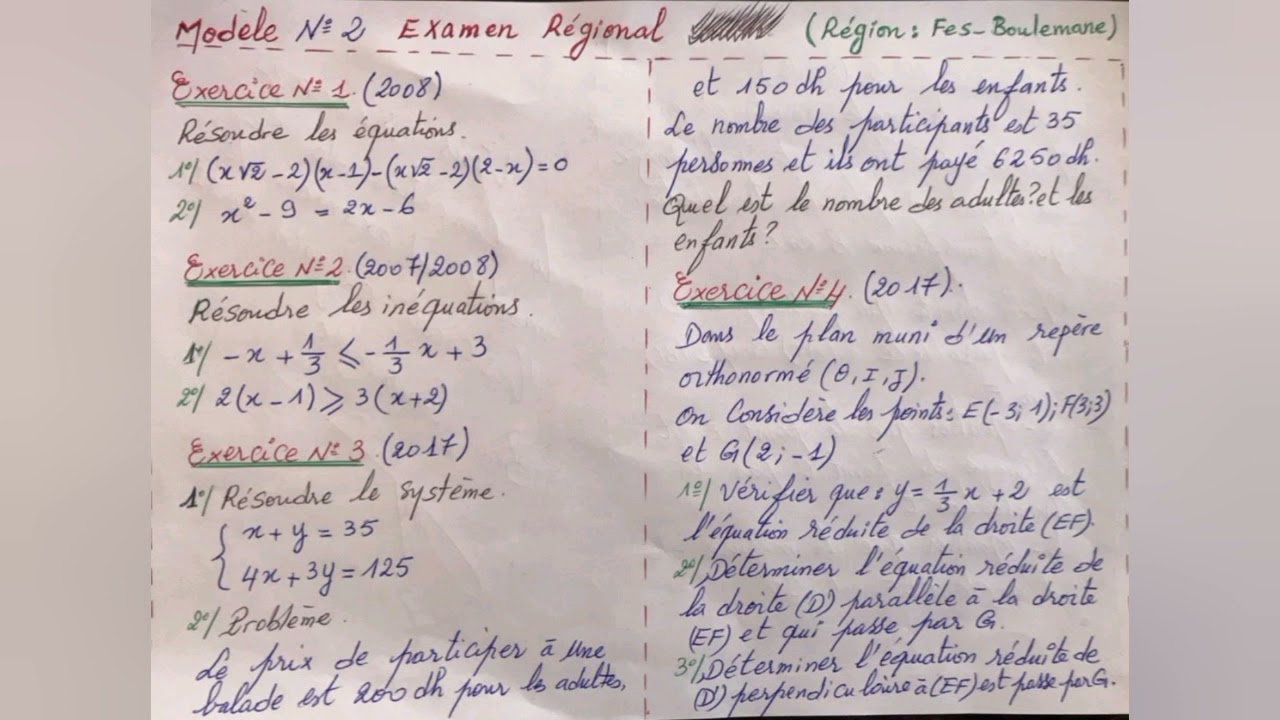 Modèle N° 2 Examen Régional (Région: Fes-Boulemane)
Exercice N° 1. (2008)
Résoudre les équations.
1°/ (x√2 - 2)(x-1)-(x√2 - 2)(2-x)=0
2°/ x² - 9 = 2x - 6
Exercice N° 2. (2007/2008)
Résoudre les inéquations.
1°/ -x + 1/3 ⩽ -1/3 x + 3
2°/ 2(x-1) ⩾ 3(x+2)
Exercice N° 3 (2017)
1°/ Résoudre le système.
{ x+y = 35
4x+3y = 125
2°/ Problème.
Le prix de participer à une
balade est 200 dh pour les adultes,
et 150 dh pour les enfants.
Le nombre des participants est 35
personnes et ils ont payé 6250 dh.
Quel est le nombre des adultes? et les
enfants?
Exercice N° 4. (2017).
Dans le plan muni d'un repère
orthonormé (O, I, J).
on Considère les points: E(-3; 1); F(3;3)
et G(2; -1)
1°/ Vérifier que: y = 1/3 x + 2 est
l'équation réduite de la droite (EF).
2°/ Déterminer l'équation réduite de
la droite (D) parallèle à la droite
(EF) et qui passe par G.
3°/ Déterminer l'équation réduite de
(D') perpendiculaire à (EF) est passe par G.